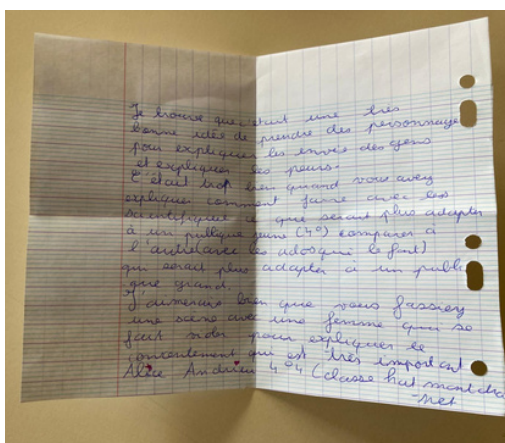 Je trouve que c'était une très
bonne idée de prendre des personnage
pour expliquer les envie des gens
et expliquer ses peurs.
C'était trop bien quand vous avez
expliquer comment faire avec les
scientifiques ce que serait plus adapter
à un publique jeune (4°) comparer à
l'autre (avec les ados qui le font)
qui serait plus adapter à un publi
que grand.
J'aimerais bien que vous fassiez
une scène avec une femme qui se
fait pour expliquer le
consentement qui est très important
Alice Andrieu 4°4 (classe
-net